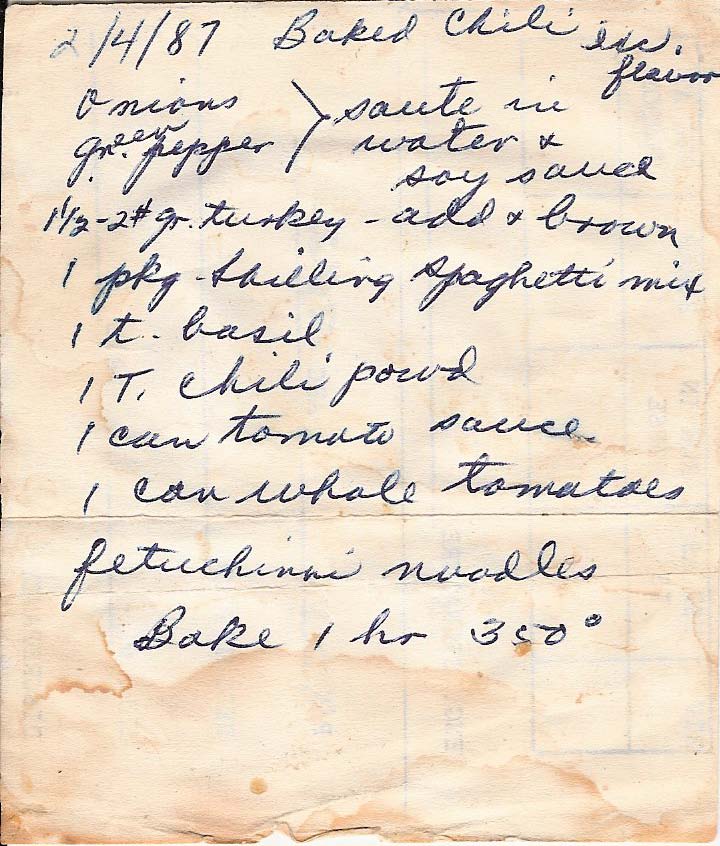 2/4/87 Baked Chili exc.
flavor
onions } saute in
green pepper water &
soy sauce
1 1/2-2# gr. turkey - add & brown
1 pkg Shilling Spaghetti mix
1 t. basil
1 T. chili powd
1 can tomato sauce
1 can whole tomatoes
fetuchinni noodles
Bake 1 hr 350°